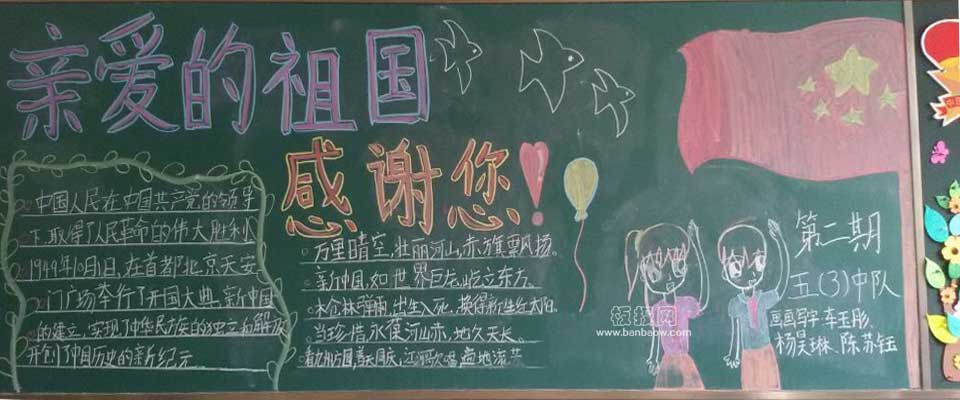 亲爱的祖国
感谢您!
中国人民在中国共产党的领导
下,取得了人民革命的伟大胜利
1949年10月1日,在首都北京天安
门广场举行了开国大典.新中国
的建立,实现了中华民族的独立和解放
开创了中国历史的新纪元
万里晴空,壮丽河山,赤旗飘扬。
新中国,如世界巨龙,屹立东方。
林弹雨,出生入死,换得新生红太阳
当珍惜,永葆河山赤,地久天长。
普天同庆,江河欢唱
第二期
五(3)中队
画画写字:车玉彤
杨昊琳、陈苏钰
板报网
www.banbaow.com